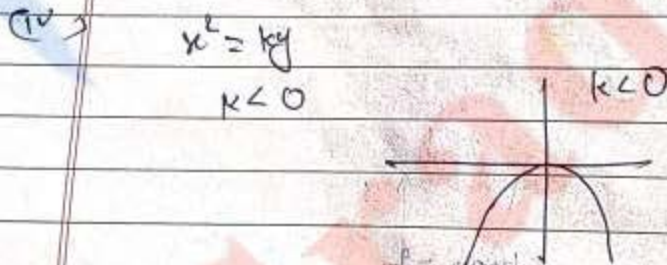 (iv)
x² = ky
k < 0
k < 0